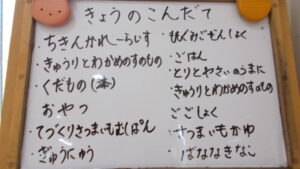 きょうのこんだて
・ちきんかれーらいす
・きゅうりとわかめのすのもの
・くだもの
おやつ
・てづくりさつまいもむしぱん
・ぎゅうにゅう
・ごはん
・とりとやさいのうまに
・きゅうりとわかめのすのもの
ごごしょく
・さつまいもかゆ
・ばななきなこ